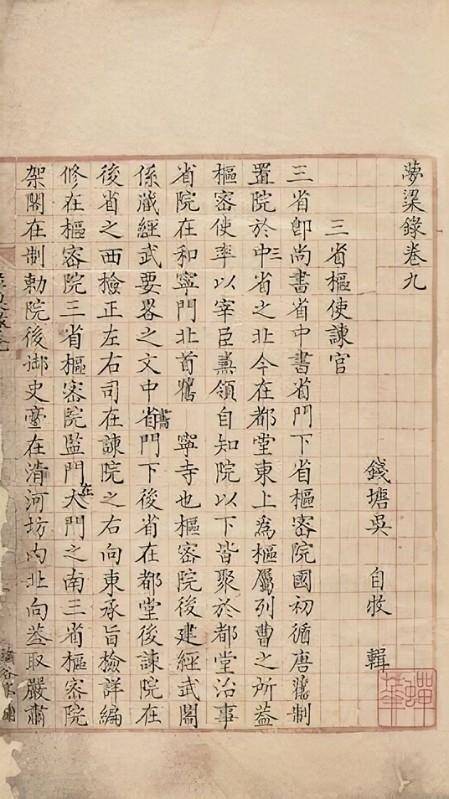 夢粱錄卷九
錢塘吳 自牧 輯
三省樞使諫官
三省卽尚書省中書省門下省樞密院國初循唐舊制
置院於中三省之北今在都堂東上為樞屬列曹之所葢
樞密使率以宰臣兼領自知院以下皆聚於都堂治事
省院在和寧門北首舊 寧寺也樞密院後建經武閣
係藏經武要畧之文中書省門下後省在都堂後諫院在
後省之西檢正左右司在諫院之右向東承旨檢詳編
修在樞密院三省樞密院監門在大門之南三省樞密院
架閣在制勅院後御史臺在清河坊內北向葢取嚴肅